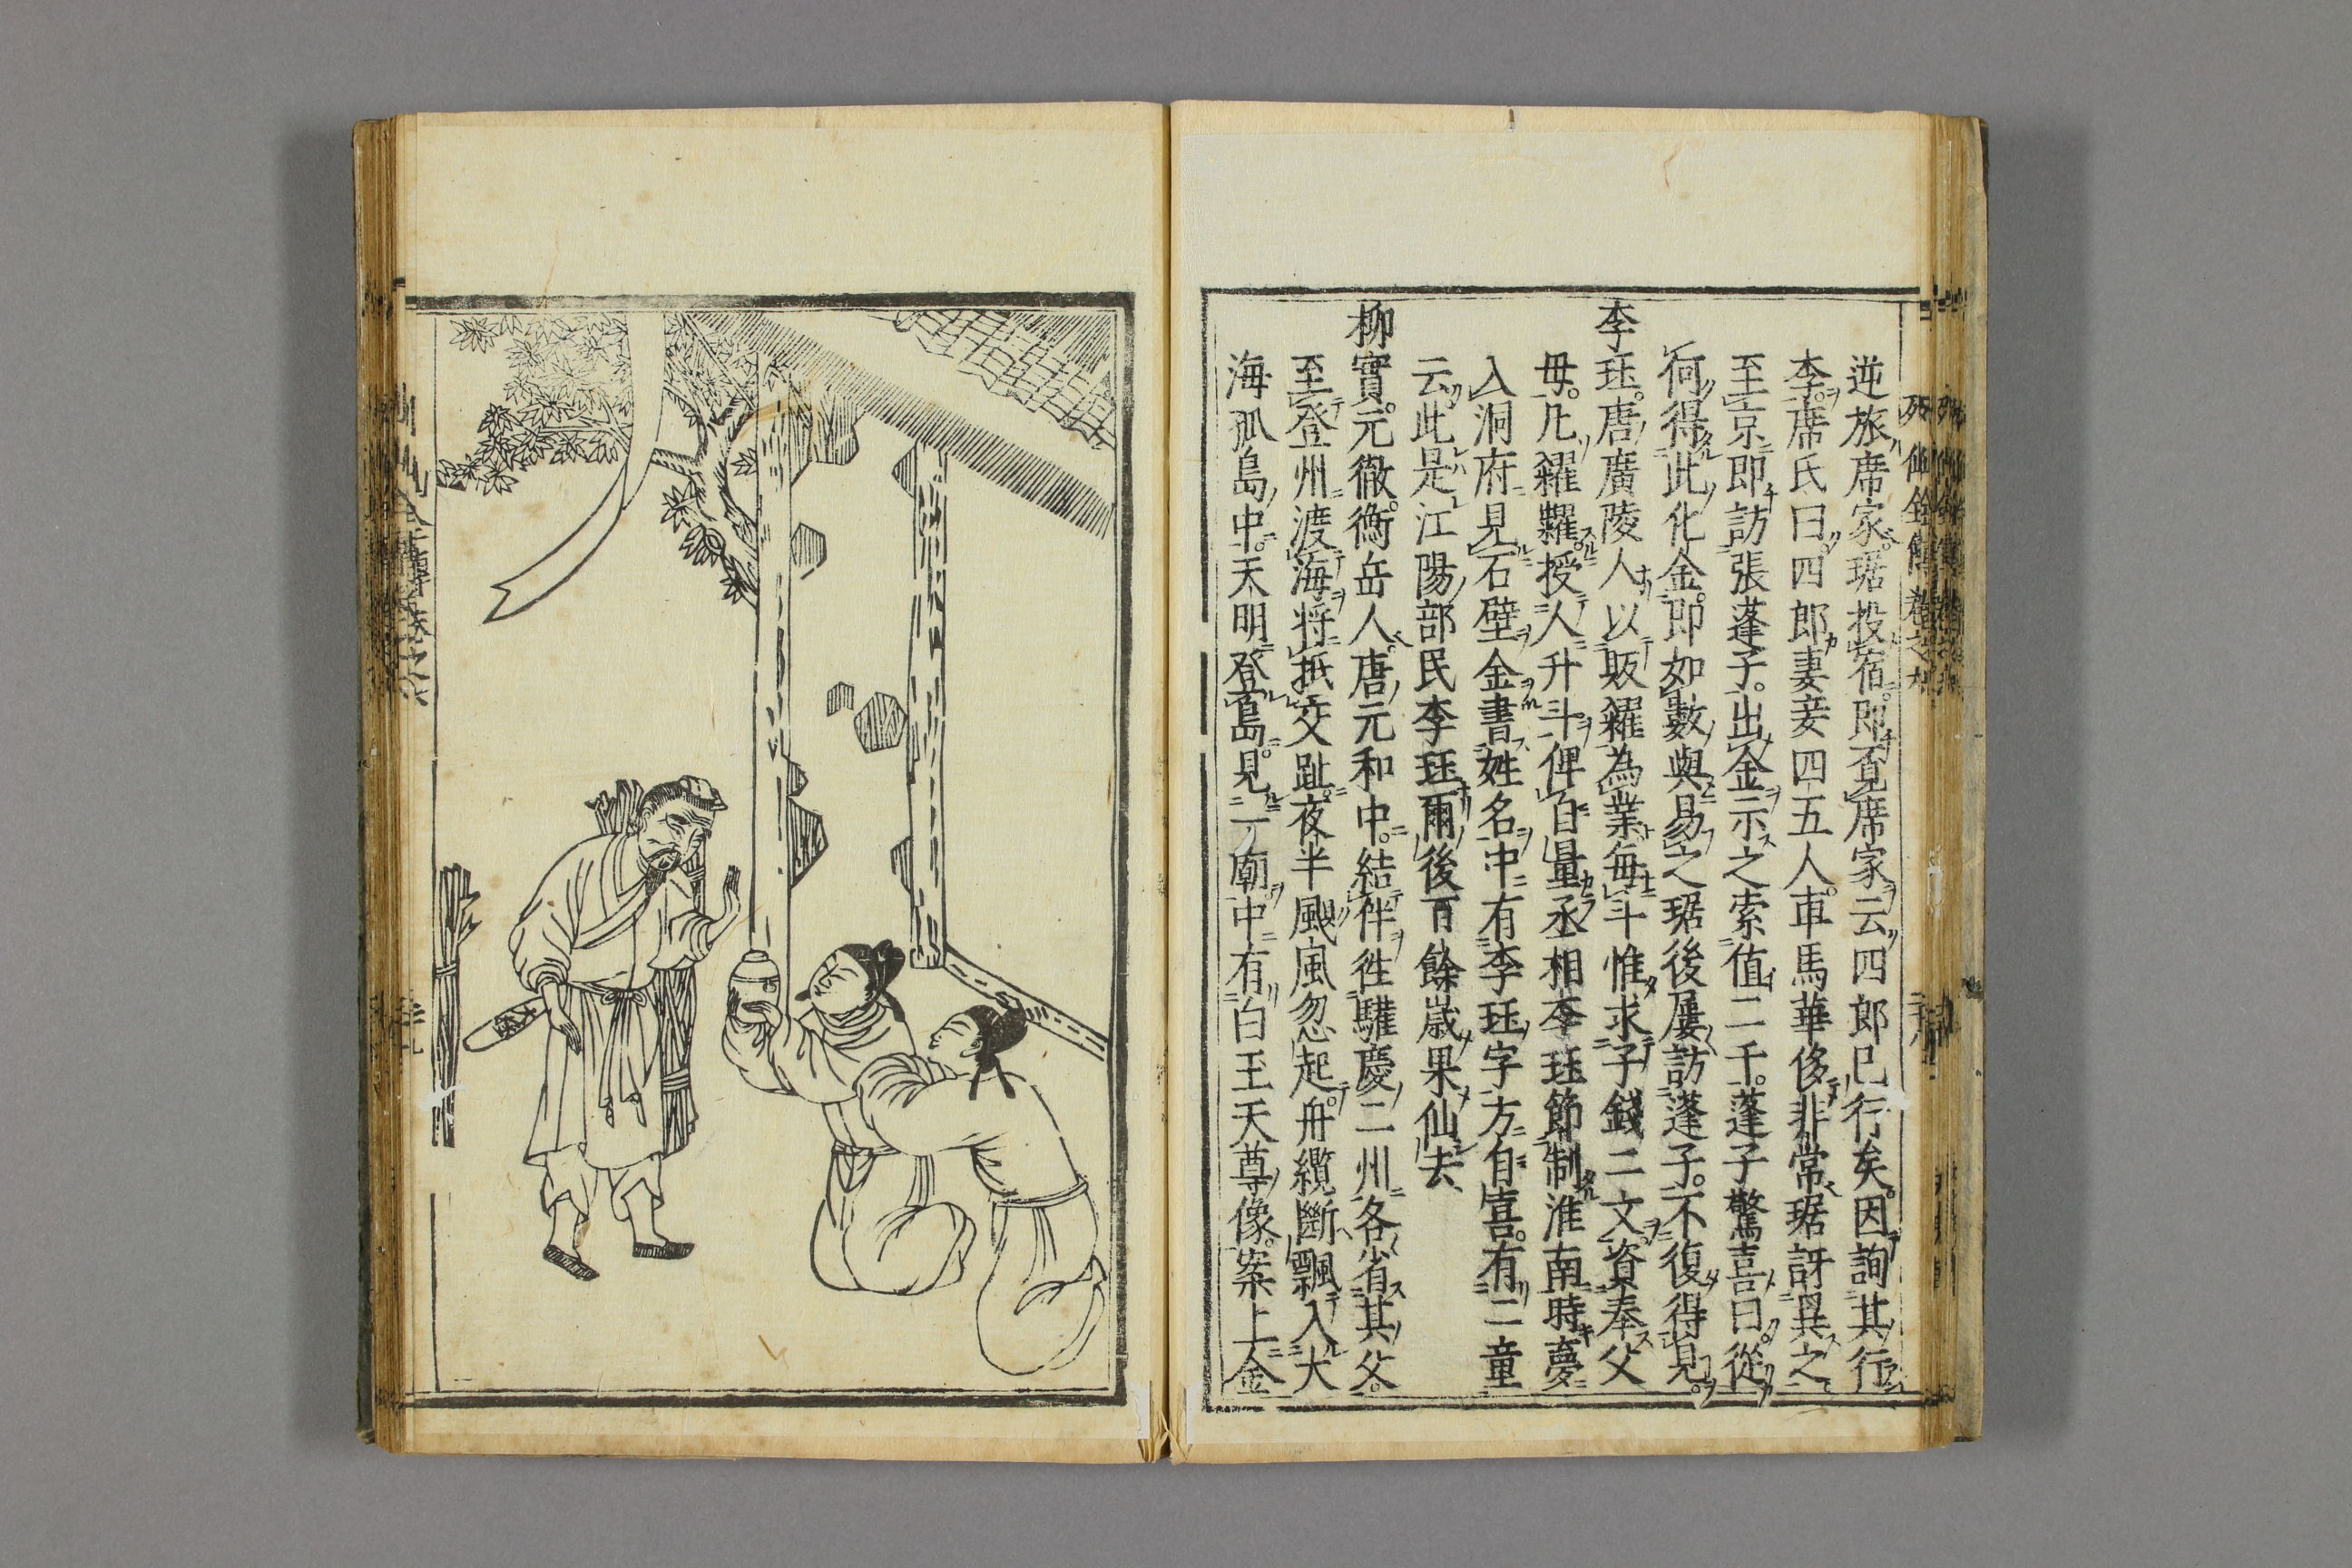 逆旅席家。琚投宿。即覔席家云四郎已行矣。因詢其行
李。席氏曰。四郎妻妾四五人。車馬華侈非常琚訝異之
至京即訪張蓬子。出金示之索值二千。蓬子驚喜曰。從
何得此化金。即如數與易之琚後屢訪蓬子。不復得見。
李珏。唐廣陵人以販糴為業每斗惟求子錢二文資奉父
母。凡糴糶。授人升斗俾自量丞相李珏節制淮南時夢
入洞府見石壁金書姓名中有李珏字方自喜。有二童
云此是江陽部民李珏爾後百餘歲果仙去
柳實。元徹。衡岳人。唐元和中。結伴徃驩慶二州各省其父。
至登州渡海将抵交趾。夜半颶風忽起。舟纜斷飄入大
海孤島中。天明登島。見一廟中有白玉天尊像。案上金